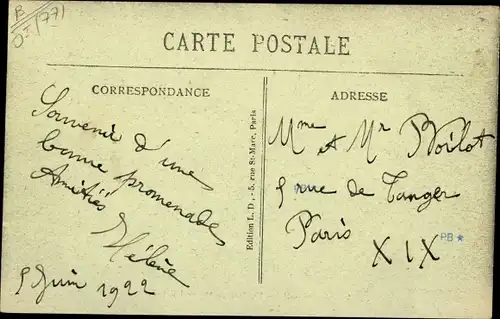 B
(77)
CARTE POSTALE
CORRESPONDANCE
ADRESSE
Souvenir d'une
bonne promenade
Amitiés
Hélène
5 Juin 1922
Edition L. D., - 5, rue St-Marc, Paris
Mme et Mr Boilot
5 rue de Tanger
Paris
XIX
PB ★